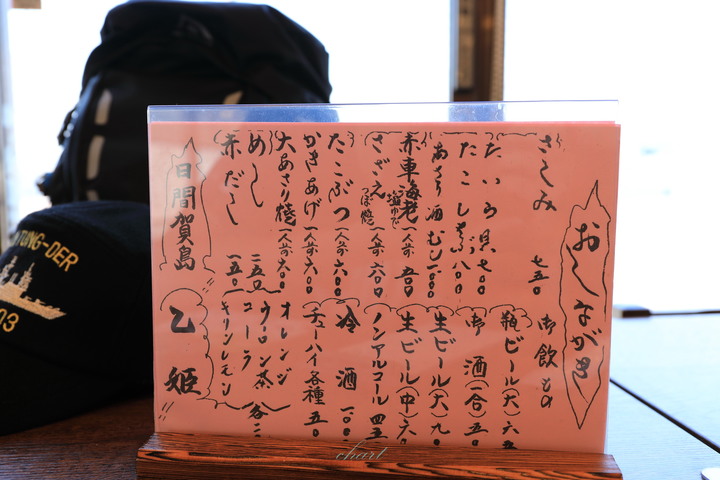 おしながき
さしみ 七五〇
たいら貝 七〇〇
たこしゃぶ 八〇〇
あさり酒むし 一、〇〇〇
赤車海老 塩ゆで 一人前 五〇〇
さざえ つぼ焼 一人前 六〇〇
たこぶつ 一人前 六〇〇
かきあげ 一人前 六〇〇
大あさり焼 一人前 六〇〇
めし 二五〇
赤だし 一五〇
日間賀島
御飲もの
瓶ビール(大) 六五
御酒(一合) 五〇
生ビール(大) 九〇
生ビール(中) 六
ノンアルコール 四五
冷酒 一、〇〇
チューハイ各種 五〇
オレンジ
ウーロン茶 各二
コーラ
キリンレモン
乙姫
TUNG-DER
03
chart